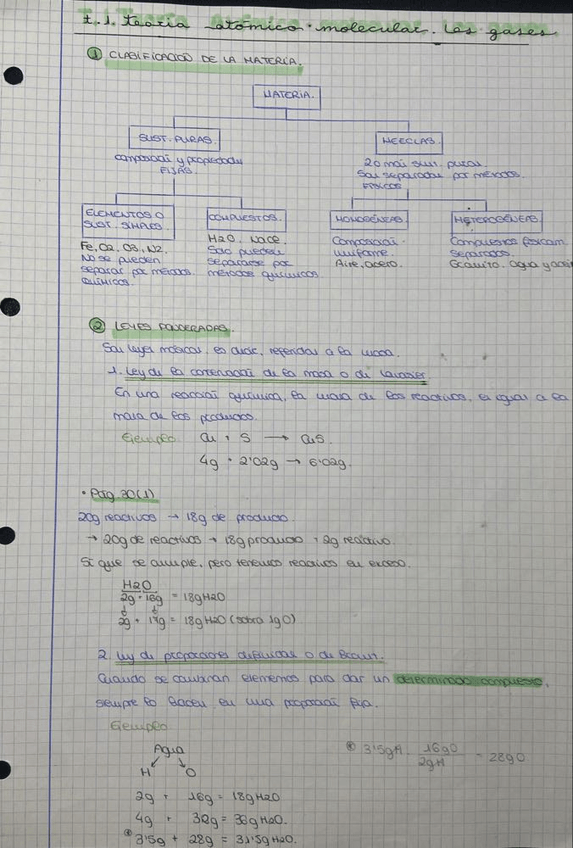 t.1. teoría atómico-molecular. Los gases.
① CLASIFICACIÓN DE LA MATERIA.
MATERIA.
SUST. PURAS MEZCLAS
composición y propiedades 2 o más sust. puras.
FIJAS. Son separadas por métodos
físicos
ELEMENTOS O COMPUESTOS. HOMOGÉNEAS HETEROGÉNEAS
SUST. SIMPLES
Fe, O2, O3, N2 H2O, NaCl Composición Componentes físicam.
No se pueden Sólo pueden uniforme. Separados.
separar por métodos separarse por Aire, acero. Granito, agua y
químicos. métodos químicos
② LEYES PONDERADAS.
Son leyes másicas, es decir, referidas a la masa.
1. Ley de la conservación de la masa o de Lavoisier
En una reacción química, la masa de los reactivos, es igual a la
masa de los productos.
Ejemplo Cu + S → CuS.
4g + 2'02g → 6'02g.
• Pág 20(1)
20g reactivos → 18g de producto.
→ 20g de reactivos → 18g producto + 2g reactivo.
Sí que se cumple, pero tenemos reactivos en exceso.
H2O
2g + 16g = 18gH2O
2g + 17g = 18gH2O (sobra 1gO)
2. Ley de proporciones definidas o de Proust.
Cuando se combinan elementos para dar un determinado compuesto,
siempre lo hacen en una proporción fija.
Ejemplo
Agua
H O
* 3'5gH · 16gO / 2gH = 28gO
2g + 16g = 18gH2O
4g + 32g = 36gH2O.
* 3'5g + 28g = 31'5gH2O.